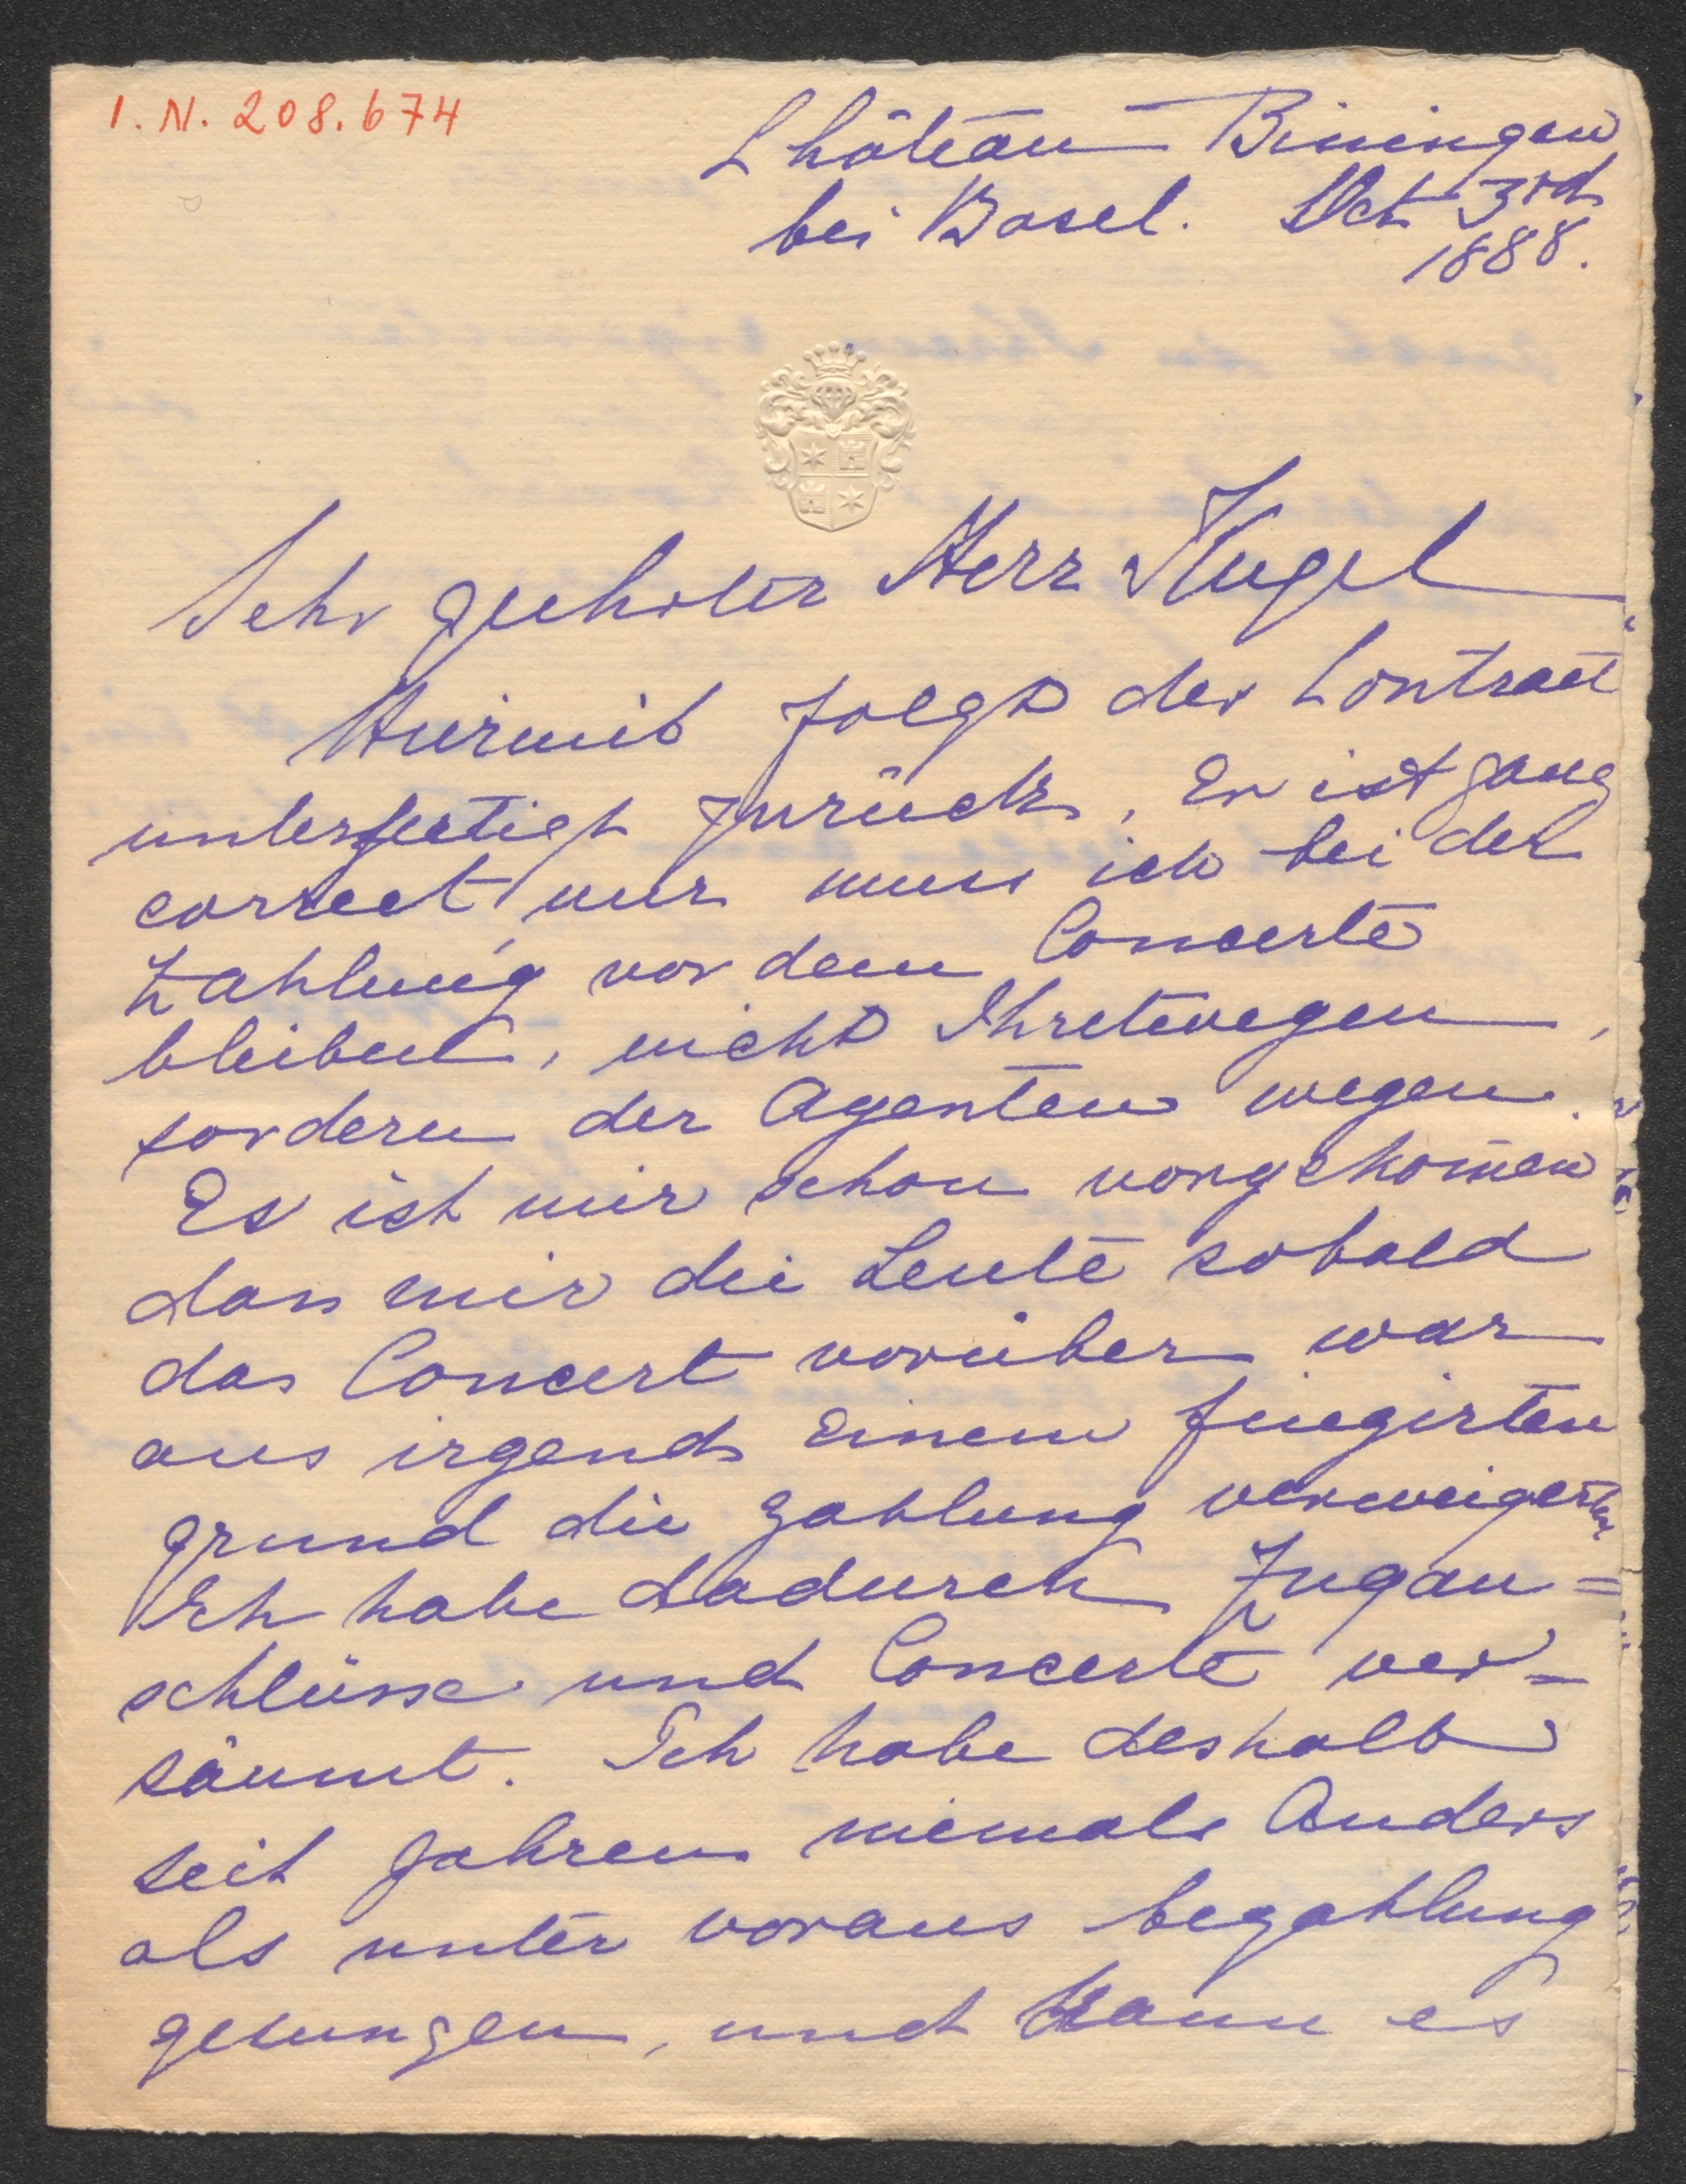 I. N. 208.674
Château Biningen
bei Basel. Oct 3rd
1888.
Sehr geehrter Herr Kugel
Hiermit folgt der Contract
unterfertigt zurück. Er ist ganz
correct nur muss ich bei der
Zahlung vor dem Concerte
bleiben, nicht Ihretwegen,
sondern der Agenten wegen.
Es ist mir schon vorgekom̄en
dass mir die Leute sobald
das Concert vorüber war
aus irgend einem fingirten
grund die Zahlung verweigerten
Ich habe dadurch Zugan=
schlüsse und Concerte ver=
säumt. Ich habe deshalb
seit Jahren niemals Anders
als unter voraus bezahlung
gesungen, und kann es